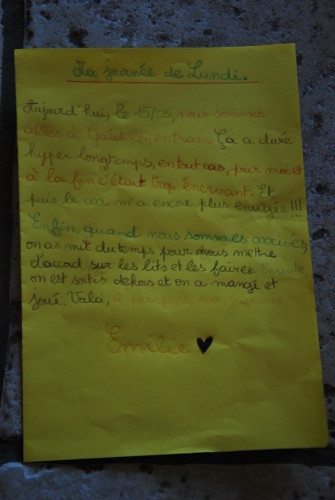 La journée de Lundi.
Aujourd'hui, le 15/05, nous sommes
allés à Guédelon en train. Ça a duré
hyper longtemps, en tout cas, pour moi et
à la fin c'était trop énervant. Et
puis le car m'a encore plus énervée !!!
Enfin, quand nous sommes arrivés,
on as mit du temps pour nous mettre
d'accord sur les lits et les faires. Ensuite
on est sortis dehors et on a mangé et
joué. Voilà, à peu près, ma journée.
Emilie ♥